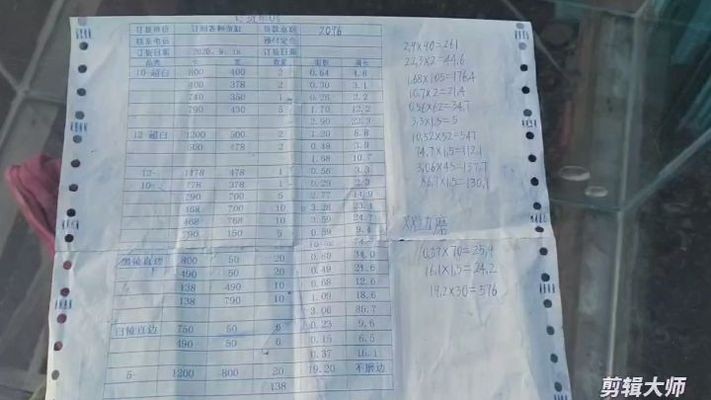 订货日期 2020.9.18 订货日期
2096
品类 长 宽 数量 面积 周长
10-超白 800 400 2 0.64 4.8
400 378 2 0.30 3.1
740 350 1 0.26 2.2
790 430 5 1.70 12.2
2.90 22.3
12-超白 1200 500 2 1.20 6.8
500 478 2 0.48 3.9
1.68 10.7
12- 1178 478 1 0.56 3.3
10- 778 378 1 0.29 2.3
790 700 5 2.77 14.9
468 700 10 3.28 23.4
468 768 10 3.59 24.7
790 150 5 0.59 9.4
直边 800 50 20 0.80 34.0
490 50 20 0.49 21.6
138 490 10 0.68 12.6
138 790 10 1.09 18.6
3.06 86.7
直边 750 50 6 0.23 9.6
490 50 6 0.15 6.5
0.37 16.1
5 1200 800 20 19.20 不磨边
138
2.9×90=261
22.3×2=44.6
1.68×105=176.4
10.7×2=21.4
0.56×62=34.7
3.3×1.5=5
10.52×52=547
74.7×1.5=112.1
3.06×45=137.7
86.7×1.5=130.1
0.37×70=25.9
16.1×1.5=24.2
19.2×30=576
剪辑大师